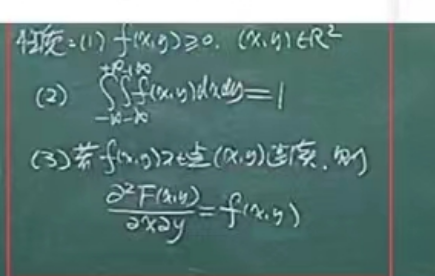 性质:(1) f(x,y)≥0. (x,y)∈R²
(2) ∫_{-∞}^{+∞}∫_{-∞}^{+∞} f(x,y)dxdy=1
(3)若f(x,y)在点(x,y)连续,则
∂²F(x,y)/∂x∂y=f(x,y)